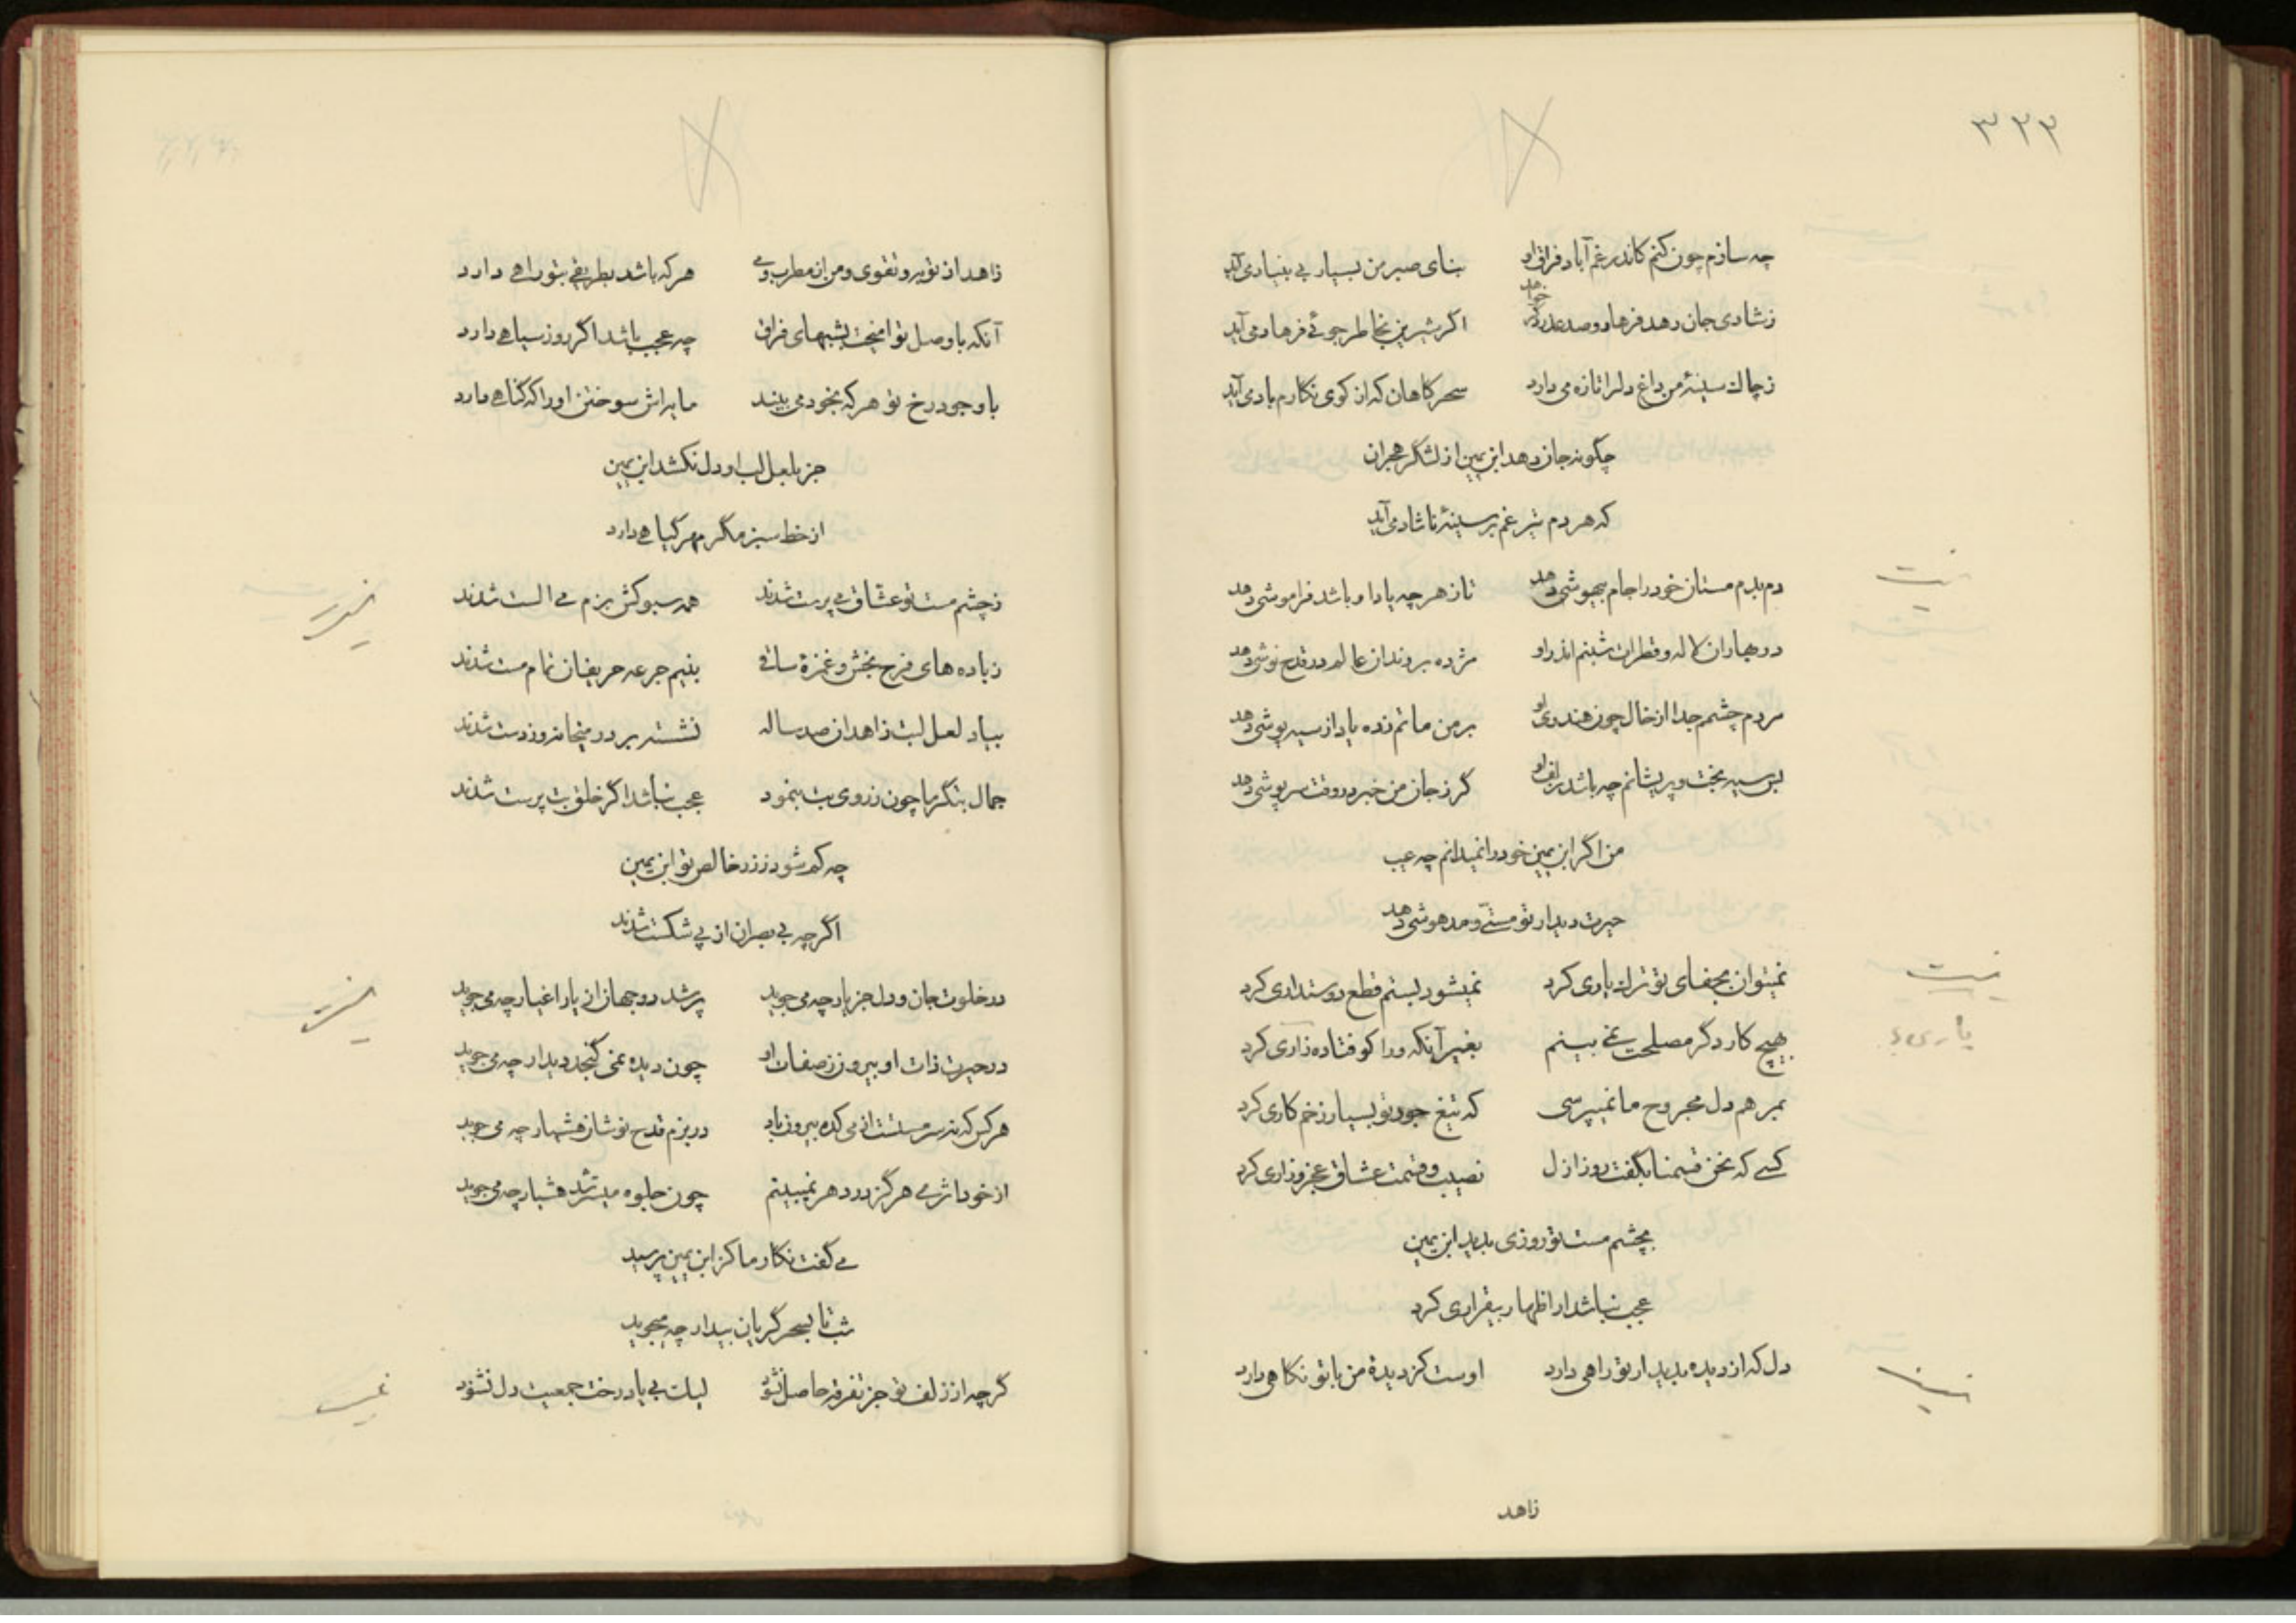 ۳۲۳
چه سازم چون کنم کاندر غم آباد فراق او بنای صبر من بسیار بی بنیاد می آید
خواهد
ز شادی جان دهد فرهاد و صد عذر اگر شیرین بخاطر جوئی فرهاد می آید
ز چاک سینهٔ من داغ دلرا تازه می دارد سحرکاهان که از کوی نکارم باد می آید
چکونه جان دهد ابن یمین از لشگر هجران
که هر دم تیر غم بر سینهٔ ناشاد می آید
دم بدم مستان خود را جام بیهوشی دهد تا ز هر چه یاد او باشد فراموشی دهد
در بهاران لاله و قطرات شبنم اندر او مژده بر رندان عالم در قدح نوشی دهد
مردم چشمم جدا از خال چون هندوی او بر من ماتم زده یاد از سیه پوشی دهد
بس سیه بخت و پریشانم چه باشد زلف او گر ز جان من خبر در وقت سرپوشی دهد
من اگر ابن یمین خود را نمیدانم چه عیب
حیرت دیدار تو مستی و مدهوشی دهد
نمیتوان بجفای تو ترک یاری کرد نمیشود بستم قطع دوستداری کرد
یاری
بهیچ کار دگر مصلحت نمی بینم بغیر آنکه در کو فتاده زاری کرد
بمرهم دل مجروح ما نمیپرسی که تیغ جور تو بسیار زخم کاری کرد
کسی که نحن قسمنا بگفت روز ازل نصیب و قسمت عشاق عجز و زاری کرد
بچشم مست تو روزی بدید ابن یمین
عجب نباشد ار اظهار بیقراری کرد
دل که از دیده بدیدار تو راهی دارد اوست کز دیدهٔ من با تو نکاهی دارد
زاهد
زاهد از تو به و تقوی و من از مطرب و می هر که باشد بطریقی بتو راهی دارد
آنکه با وصل تو امیخت بشبهای فراق چه عجب باشد اگر روز سیاهی دارد
با وجود رخ تو هر که بخود می بیند ما براتش سوختن او را که گناهی دارد
جز بلعل لب او دل نکشد ابن یمین
از خط سبز مگر مهر گیاهی دارد
ز چشم مست تو عشاق می پرست شدند همه سبوکش بزم می الست شدند
ز باده های فرح بخش و غمزهٔ ساقی بنیم جرعه حریفان تمام مست شدند
بیاد لعل لبت زاهدان صد ساله نشسته بر در میخانه و ز دست شدند
جمال بتگر ما چون ز روی بت بنمود عجب نباشد اگر خلق بت پرست شدند
چه کم شود ز زر خالص تو ابن یمین
اگر چه بی بصران از پی شکست شدند
در خلوت جان و دل جز یار چه می جوید پر شد دو جهان از یار اغیار چه می جوید
در حیرت ذات او بیرون ز صفات او چون دیده نمی گنجد دیدار چه می جوید
هر کس که نه سرمستست از می کده بیرون باد در بزم قدح نوشان هشیار چه می جوید
از خود اثری هرگز در دهر نمیبینم چون جلوه میسر شد هشیار چه می جوید
می گفت نکار ما کز ابن یمین پرسید
شب تا بسحر گریان بیدار چه میجوید
گر چه از زلف تو جز تفرقه حاصل نشود لیک بی یاد رخت جمعیت دل نشود